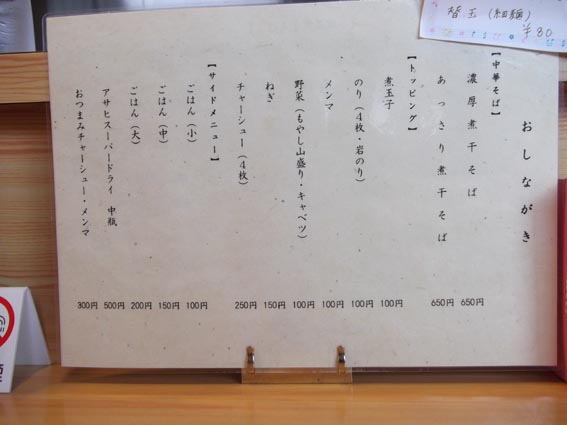 替玉(細麺)
¥80
おしながき
【中華そば】
濃厚煮干そば 650円
あっさり煮干そば 650円
【トッピング】
煮玉子 100円
のり(4枚・岩のり) 100円
メンマ 100円
野菜(もやし山盛り・キャベツ) 100円
ねぎ 150円
チャーシュー(4枚) 250円
【サイドメニュー】
ごはん(小) 100円
ごはん(中) 150円
ごはん(大) 200円
アサヒスーパードライ 中瓶 500円
おつまみチャーシュー・メンマ 300円